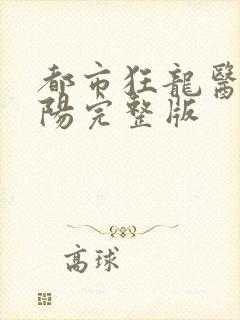 都市狂龍醫
陽完整版
高球